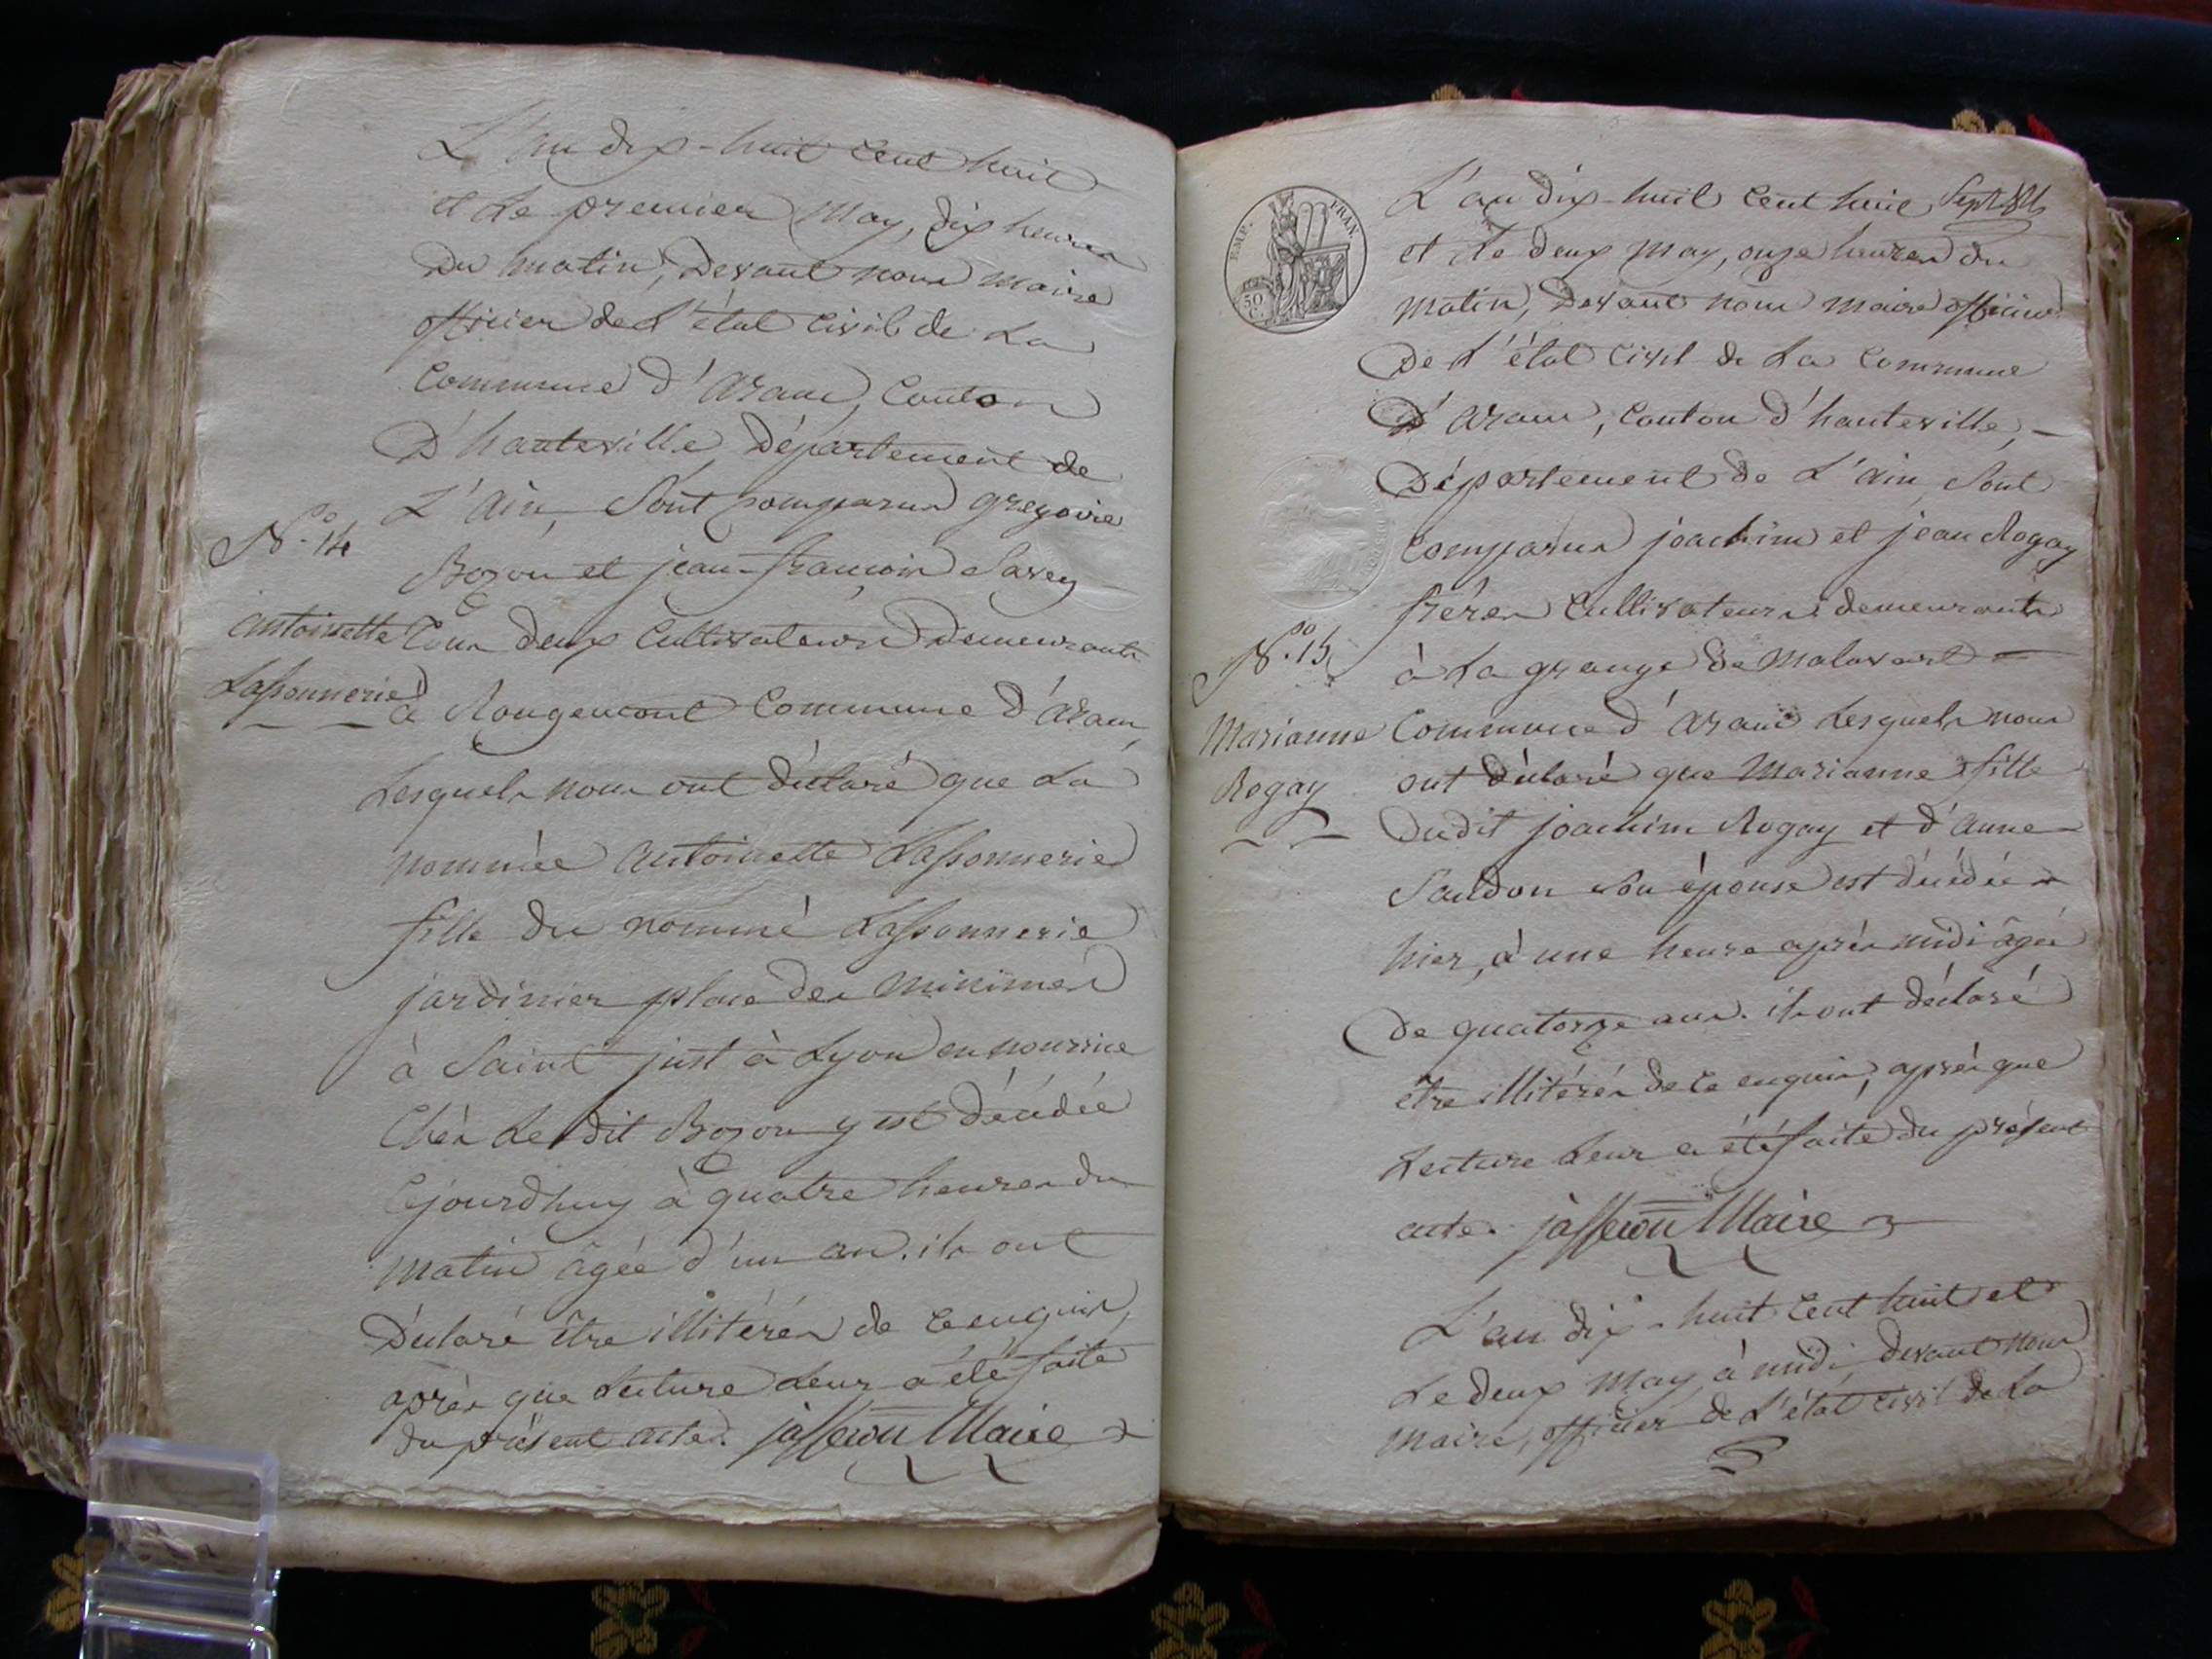 L'an dix-huit cent huit
et le premier May, dix heures
du matin, devant nous maire
officier de l'état civil de la
Commune d'aranc, Canton
D'hauteville Département de
L'ain, sont comparus gregoire
Bozon et jean-françois Savey
N.o 14
antoinette
Lassonnerie
tous deux Cultivateurs demeurants
à Rougemont Commune d'aranc,
Lesquels nous ont déclaré que la
nommée antoinette Lassonnerie
fille du nommé Lassonnerie
jardinier place des minimes
à Saint just à Lyon en nourrice
chès le dit Bozon y est décédée
cejourdhuy à quatre heures du
matin âgée d'un an. ils ont
Déclaré être illitérés de ce enquis,
après que lecture leur a été faite
du présent acte. jasseron Maire
EMP. FRAN.
50 C.
L'an dix-huit cent huit
et le deux may, onze heures du
matin, devant nous maire officier
de l'état civil de la Commune
d'aranc, Canton d'hauteville,
Département de L'ain sont
Comparus joachim et jean Rogay
frères Cultivateurs demeurants
à la grange de Malavert
N.o 15
Marianne
Rogay
Commune d'aranc Lesquels nous
ont déclaré que Marianne fille
dudit joachim Rogay et d'anne
Savdon son épouse est décédée
hier, à une heure après midi âgée
de quatorze ans. ils ont déclaré
être illitérés de ce enquis, après que
Lecture leur a été faite du présent
acte. jasseron Maire
L'an dix-huit cent huit et
le deux May, à midi, devant nous
Maire, officier de l'état civil de la